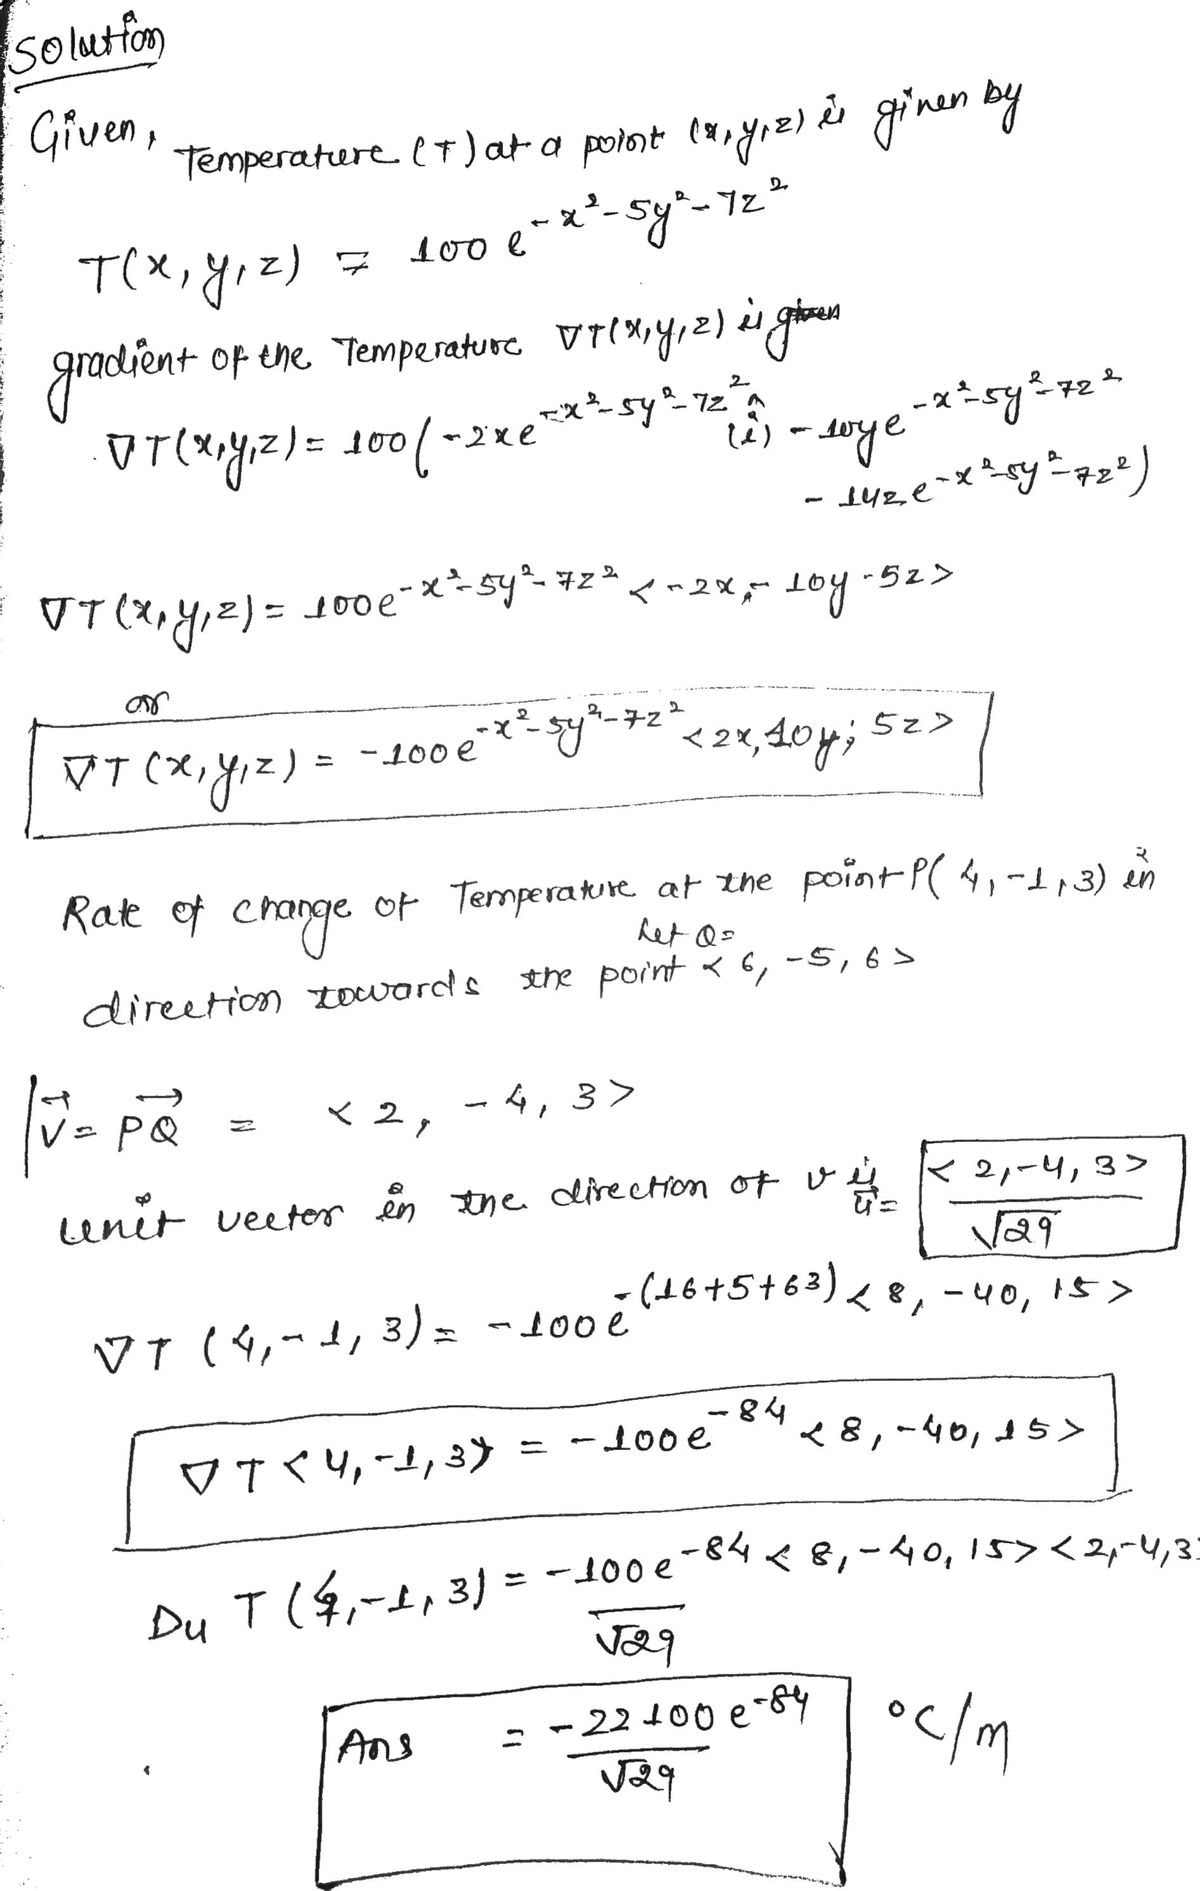 Solution
Given, Temperature (T) at a point (x, y, z) is given by
T(x, y, z) = 100 e^{-x²-5y²-7z²}
gradient of the Temperature ∇T(x,y,z) is
∇T(x,y,z) = 100(-2xe^{-x²-5y²-7z²}(î) - 10ye^{-x²-5y²-7z²}
- 14ze^{-x²-5y²-7z²})
∇T(x,y,z) = 100e^{-x²-5y²-7z²} <-2x, -10y -5z>
or
∇T(x,y,z) = -100e^{-x²-5y²-7z²} <2x, 10y, 5z>
Rate of change of Temperature at the point P(4,-1,3) in
Let Q=
direction towards the point <6, -5, 6>
V⃗ = PQ⃗ = <2, -4, 3>
unit vector in the direction of v is u⃗ = <2,-4,3>/√29
∇T(4,-1,3) = -100e^{-(16+5+63)} <8, -40, 15>
∇T<4,-1,3> = -100e^{-84} <8,-40,15>
Du T(4,-1,3) = -100e^{-84}/√29 <8,-40,15> <2,-4,3>
Ans = -22100 e^{-84}/√29 °C/m